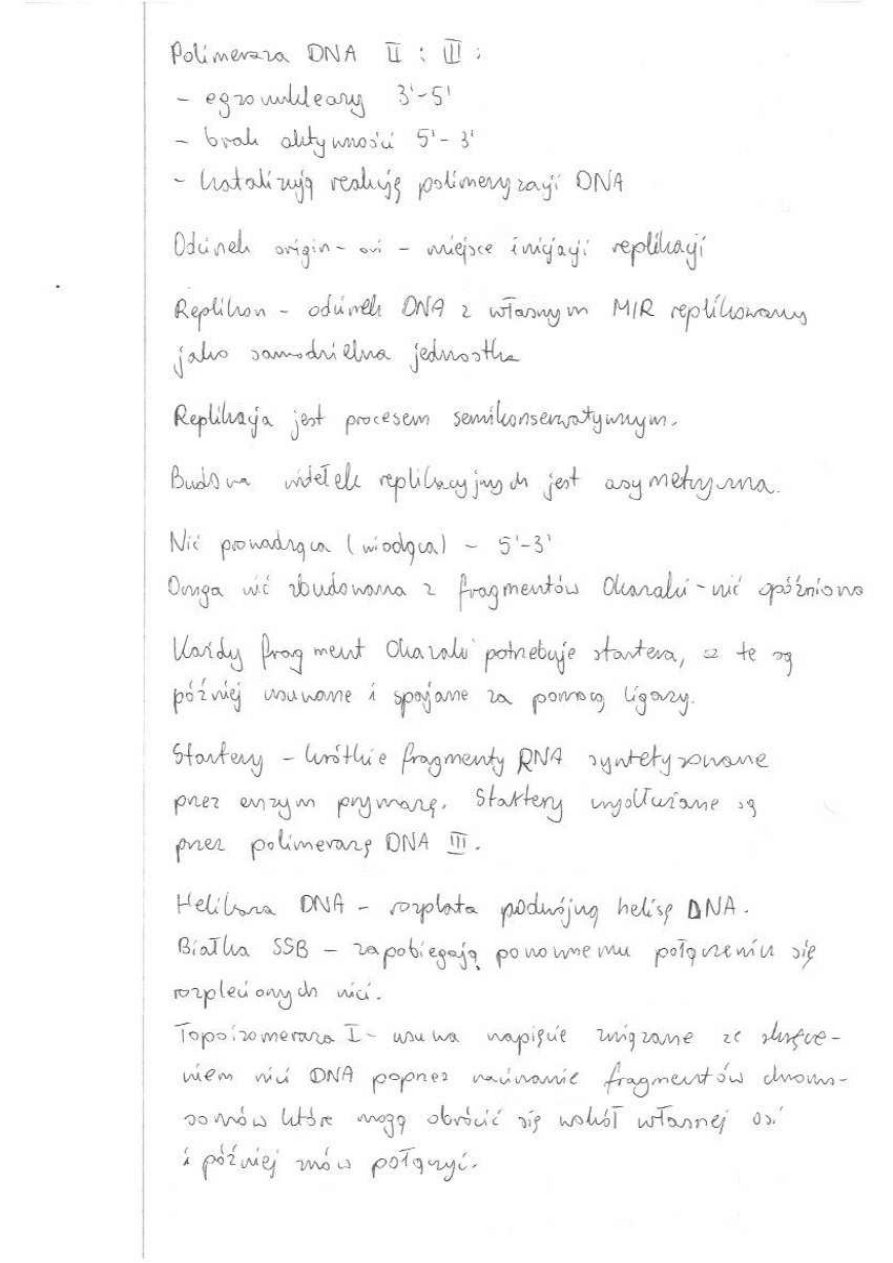 Polimeraza DNA II i III:
- egzonukleazy 3'-5'
- brak aktywności 5'-3'
- katalizują reakcję polimeryzacji DNA
Odcinek origin - ori - miejsce inicjacji replikacji
Replikon - odcinek DNA z własnym MIR replikowany
jako samodzielna jednostka
Replikacja jest procesem semikonserwatywnym.
Budowa widełek replikacyjnych jest asymetryczna.
Nić prowadząca (wiodąca) - 5'-3'
Druga nić zbudowana z fragmentów Okazaki - nić opóźniona
Każdy fragment Okazaki potrzebuje startera, a te są
później usuwane i spajane za pomocą ligazy.
Startery - krótkie fragmenty RNA syntetyzowane
przez enzym prymazę. Startery wydłużane są
przez polimerazę DNA III.
Helikaza DNA - rozplata podwójną helisę DNA.
Białka SSB - zapobiegają ponownemu połączeniu się
rozplecionych nici.
Topoizomeraza I - usuwa napięcie związane ze skręce-
niem nici DNA poprzez nacinanie fragmentów chromo-
somów które mogą obrócić się wokół własnej osi
i później znów połączyć.